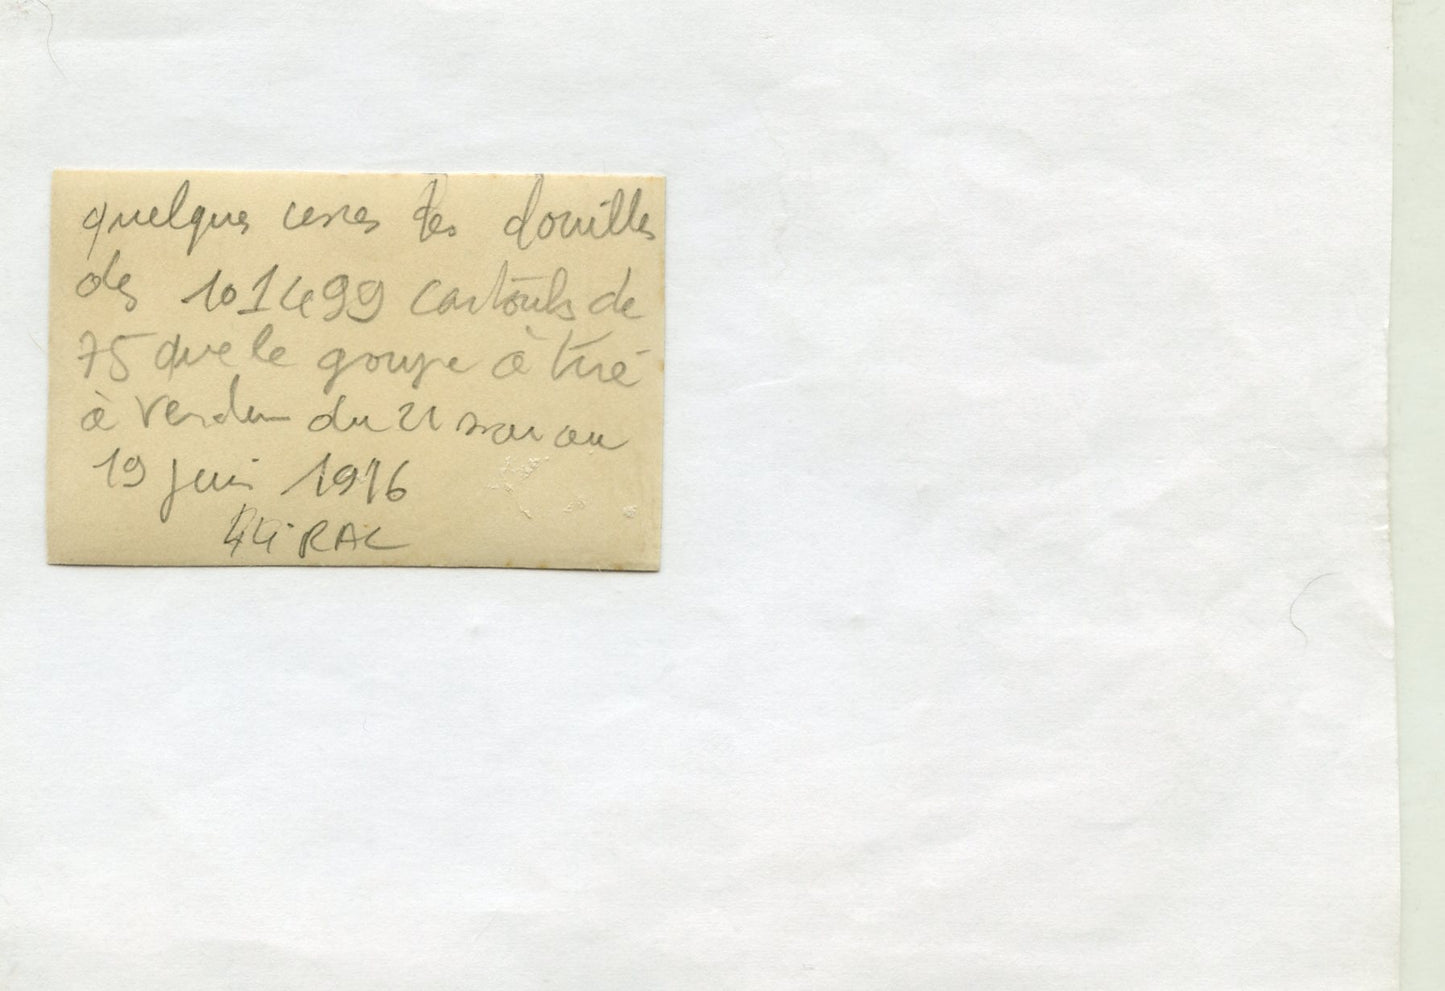 quelques unes des douilles
des 101499 cartouches de
75 que le groupe à tiré
à Verdun du 21 mai au
19 juin 1916
44e RAC